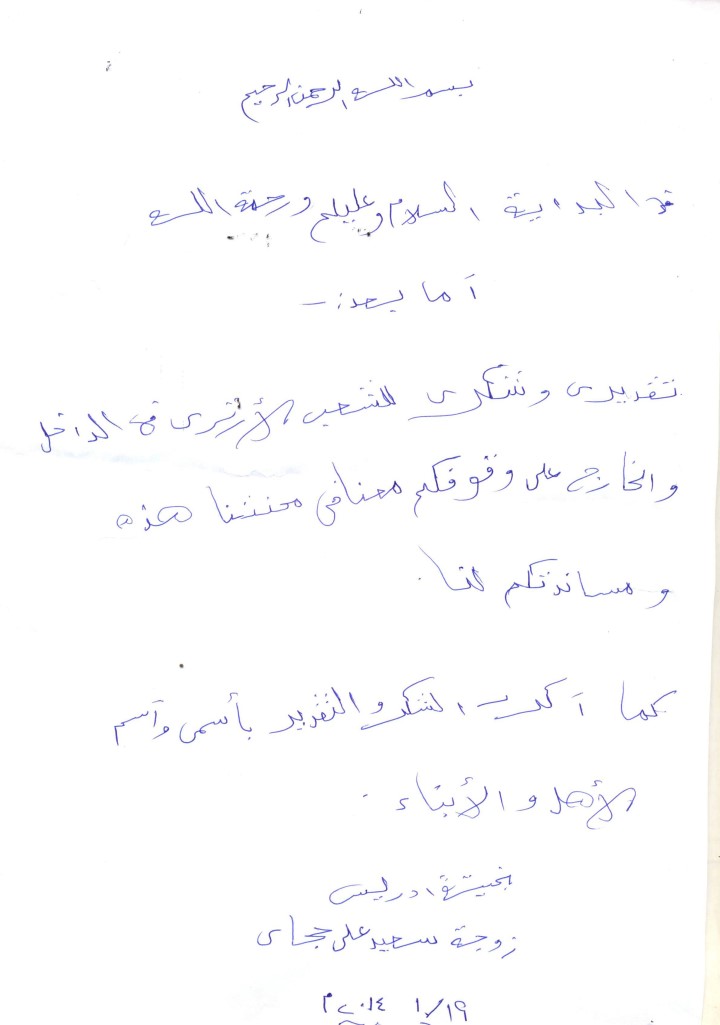 بسم الله الرحمن الرحيم
في البداية السلام وعليكم ورحمة الله
أما بعد :-
تقديري وشكرى للشعب الأرترى في الداخل
والخارج على وقوفكم معنا في محنتنا هذه
ومساندتكم لنا .
كما أكرر الشكر والتقدير بأسمى وأسم
الأهل والأبناء .
بخيتة ادريس
زوجة سعيد على حجاى
١٩/١/٢٠١٤م